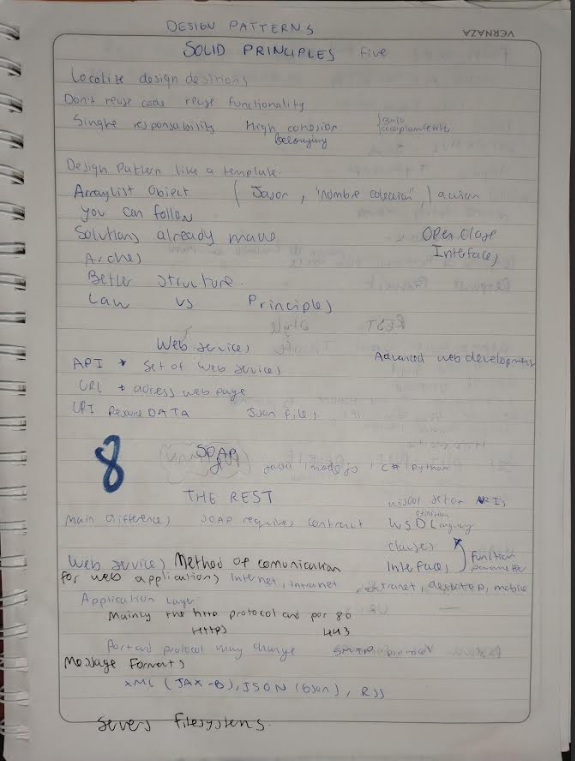 DESIGN PATTERNS
VERNAZA
SOLID PRINCIPLES Five
Localize design desitions
Don't reuse code reuse functionality
Single responsability High cohesion
belonging
Design Pattern like a template.
ArrayList Object (Jason, "nombre coleccion",) action
you can follow
Solutions already made
Open Close
Arches
Interfaces
Better structure.
Law vs Principles
REST
Web services
Advanced web development
API * Set of web services
URL * access web page
URI DATA Json files
8
SOAP
java nodejs C# python
THE REST
APIs
Main differences SOAP requires contract WSDL
classes
Web services Method of comunication Interfaces function parameter
For web applications Internet, Intranet extranet, desktop, mobile
Application Layer
Mainly the http protocol and por 80
HTTPS 443
Port and protocol may change
Message formats
XML (JAX-B), JSON (Gson), RSS
Severs filesystems.